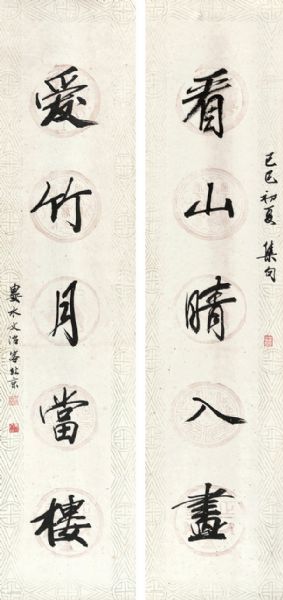 看山晴入畫
己巳初夏集句
愛竹月當樓
婁水文治客北京